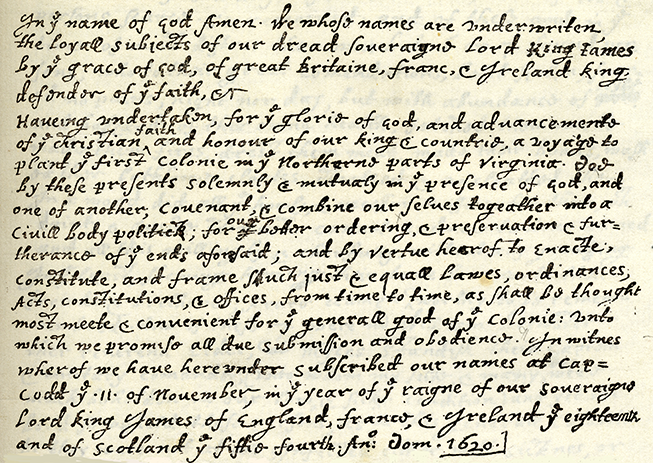 In yͤ name of god Amen. We whose names are underwriten,
the loyall subjects of our dread soveraigne Lord King James
by yͤ grace of god, of great Britaine, franc, & Ireland king,
defender of yͤ faith, &c
Haveing undertaken, for yͤ glorie of god, and advancemente
of yͤ christian faith and honour of our king & countrie, a voyage to
plant yͤ first colonie in yͤ Northerne parts of Virginia. Doe
by these presents solemnly & mutualy in yͤ presence of god, and
one of another; covenant, & combine our selves togeather into a
Civill body politick; for our better ordering, & preservation & fur=
therance of yͤ ends aforesaid; and by vertue hearof to Enacte,
constitute, and frame shuch just & equall Lawes, ordinances,
Acts, constitutions, & offices, from time to time, as shall be thought
most meete & convenient for yͤ generall good of yͤ colonie: unto
which we promise all due submission and obedience. In witnes
wherof we have hereunder subscribed our names at Cap=
Codd yͤ .11. of November, in yͤ year of yͤ raigne of our soveraigne
Lord king James of England, france, & Ireland yͤ eighteenth
and of scotland yͤ fiftie fourth. Anº. Dom. 1620.]